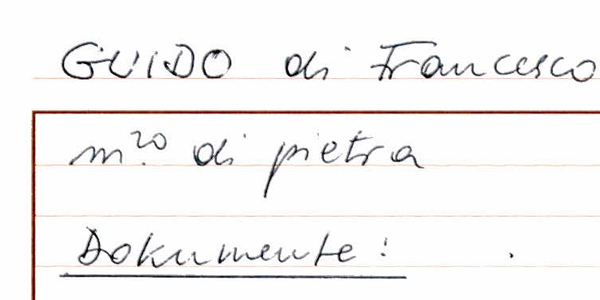 GUIDO di Francesco
m.ro di pietra
Dokumente: